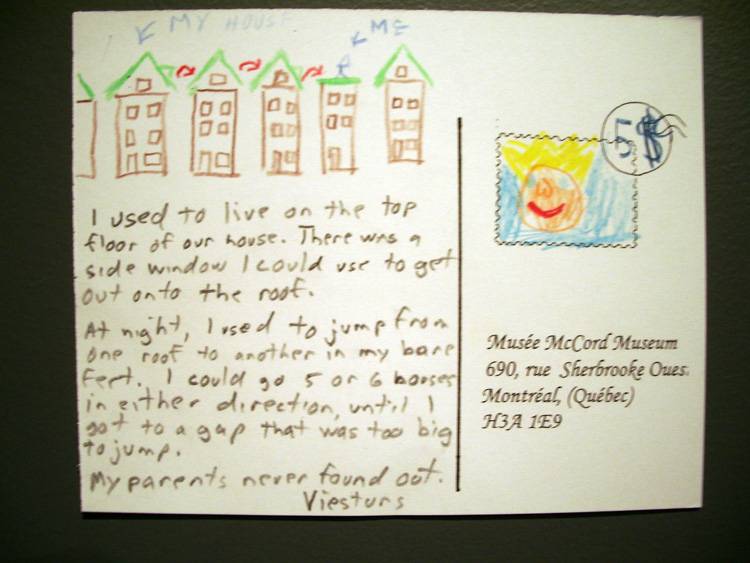 MY HOUSE
ME
I used to live on the top
floor of our house. There was a
side window I could use to get
out onto the roof.
At night, I used to jump from
one roof to another in my bare
feet. I could go 5 or 6 houses
in either direction, until I
got to a gap that was too big
to jump.
My parents never found out.
Viesturs
5$
Musée McCord Museum
690, rue Sherbrooke Oues.
Montréal, (Québec)
H3A 1E9